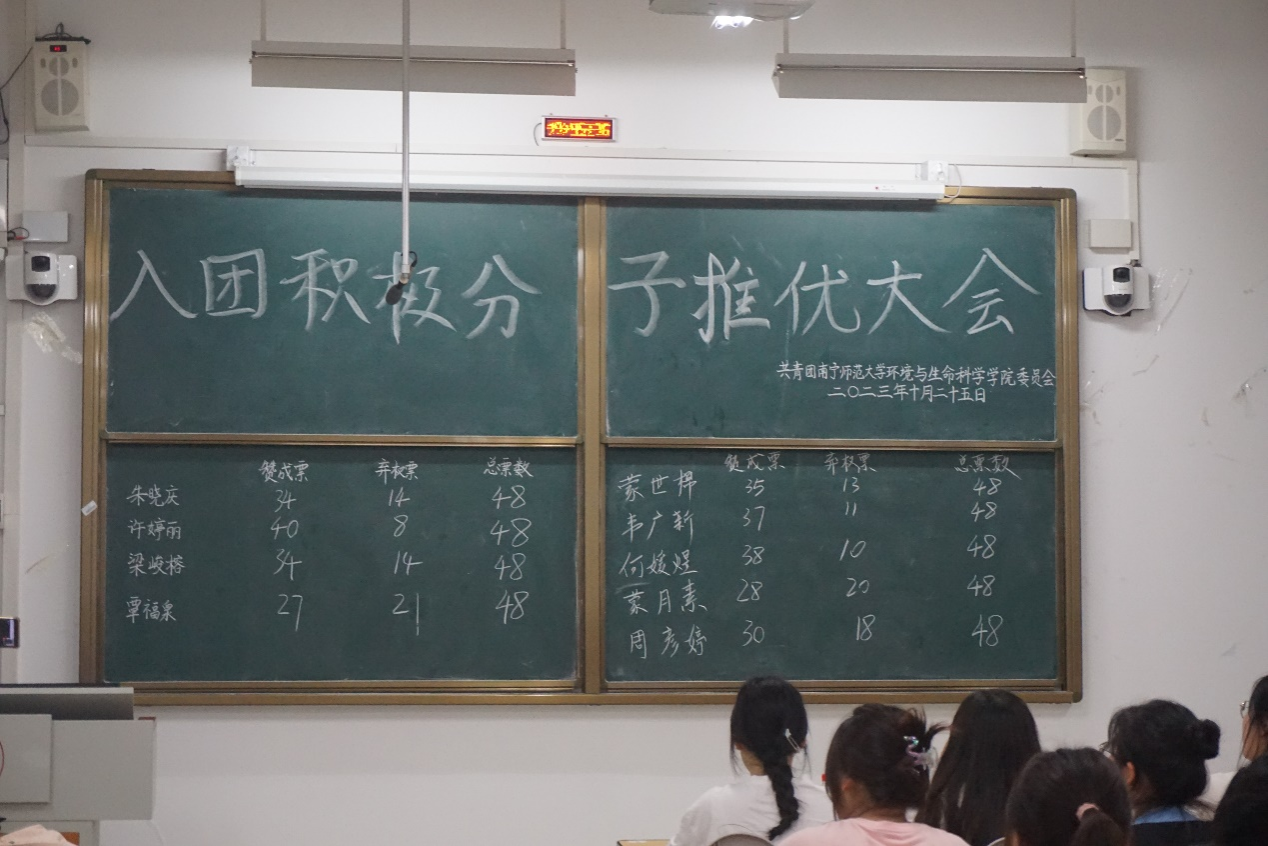 入团积极分子推优大会
共青团南宁师范大学环境与生命科学学院委员会
二〇二三年十月二十五日
赞成票 弃权票 总票数
朱晓庆 34 14 48
许婷丽 40 8 48
梁峻榕 34 14 48
覃福泉 27 21 48
赞成票 弃权票 总票数
蒙世樿 35 13 48
韦广新 37 11 48
何媛煜 38 10 48
蒙月素 28 20 48
周彦婷 30 18 48